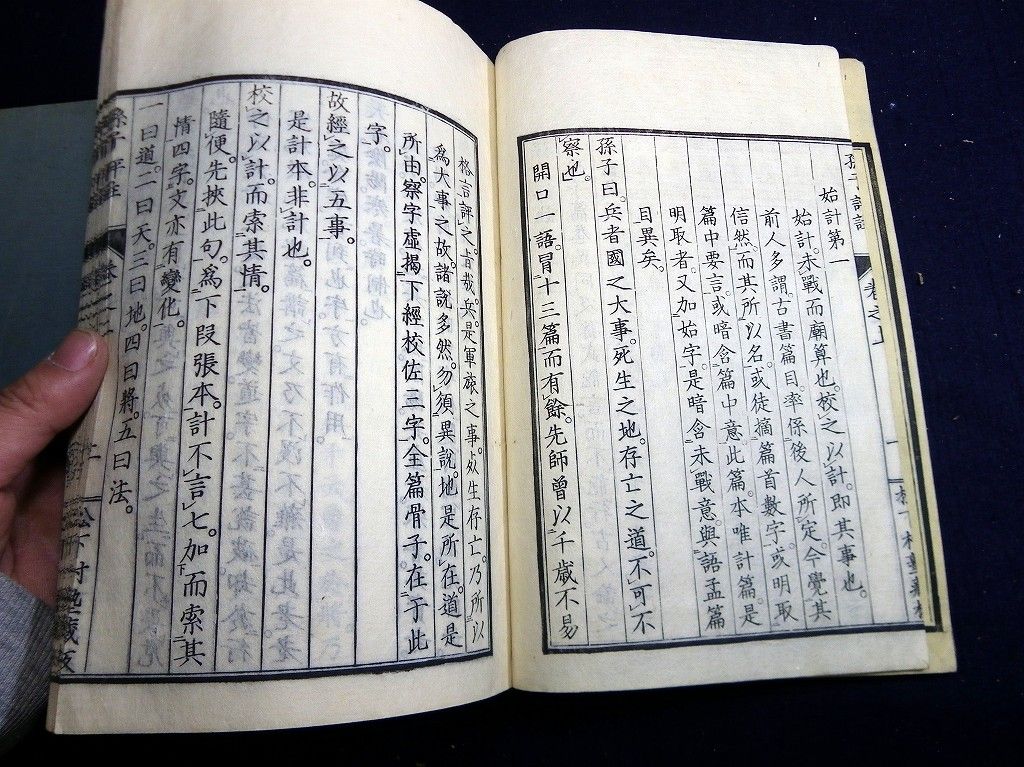 孫子評註
卷之上
始計第一
始計。未戰而廟算也。校之以計。即其事也。
前人多謂。古書篇目。率係後人所定。今覺其
信然。而其所以名。或徒摘篇首數字。或明取
篇中要言。或暗含篇中意。此篇。本唯計篇。是
明取者。又加始字。是暗含未戰意。與語孟篇
目異矣。
孫子曰。兵者國之大事。死生之地。存亡之道。不可不
察也。
開口一語。冒十三篇而有餘。先師曾以千歲不易
格言評之。旨哉。兵是軍旅之事。死生存亡。乃所以
爲大事之故。諸說多然。勿須異說。地是所在。道是
所由。察字虛揭。下經校佐三字。全篇骨子。在于此
字。
故經之以五事。
是計本。非計也。
校之以計。而索其情。
隨便。先挾此句。爲下段張本。計不言七。加而索其
情四字。文亦有變化。
一曰道。二曰天。三曰地。四曰將。五曰法。
孫子評註
松下村塾藏版